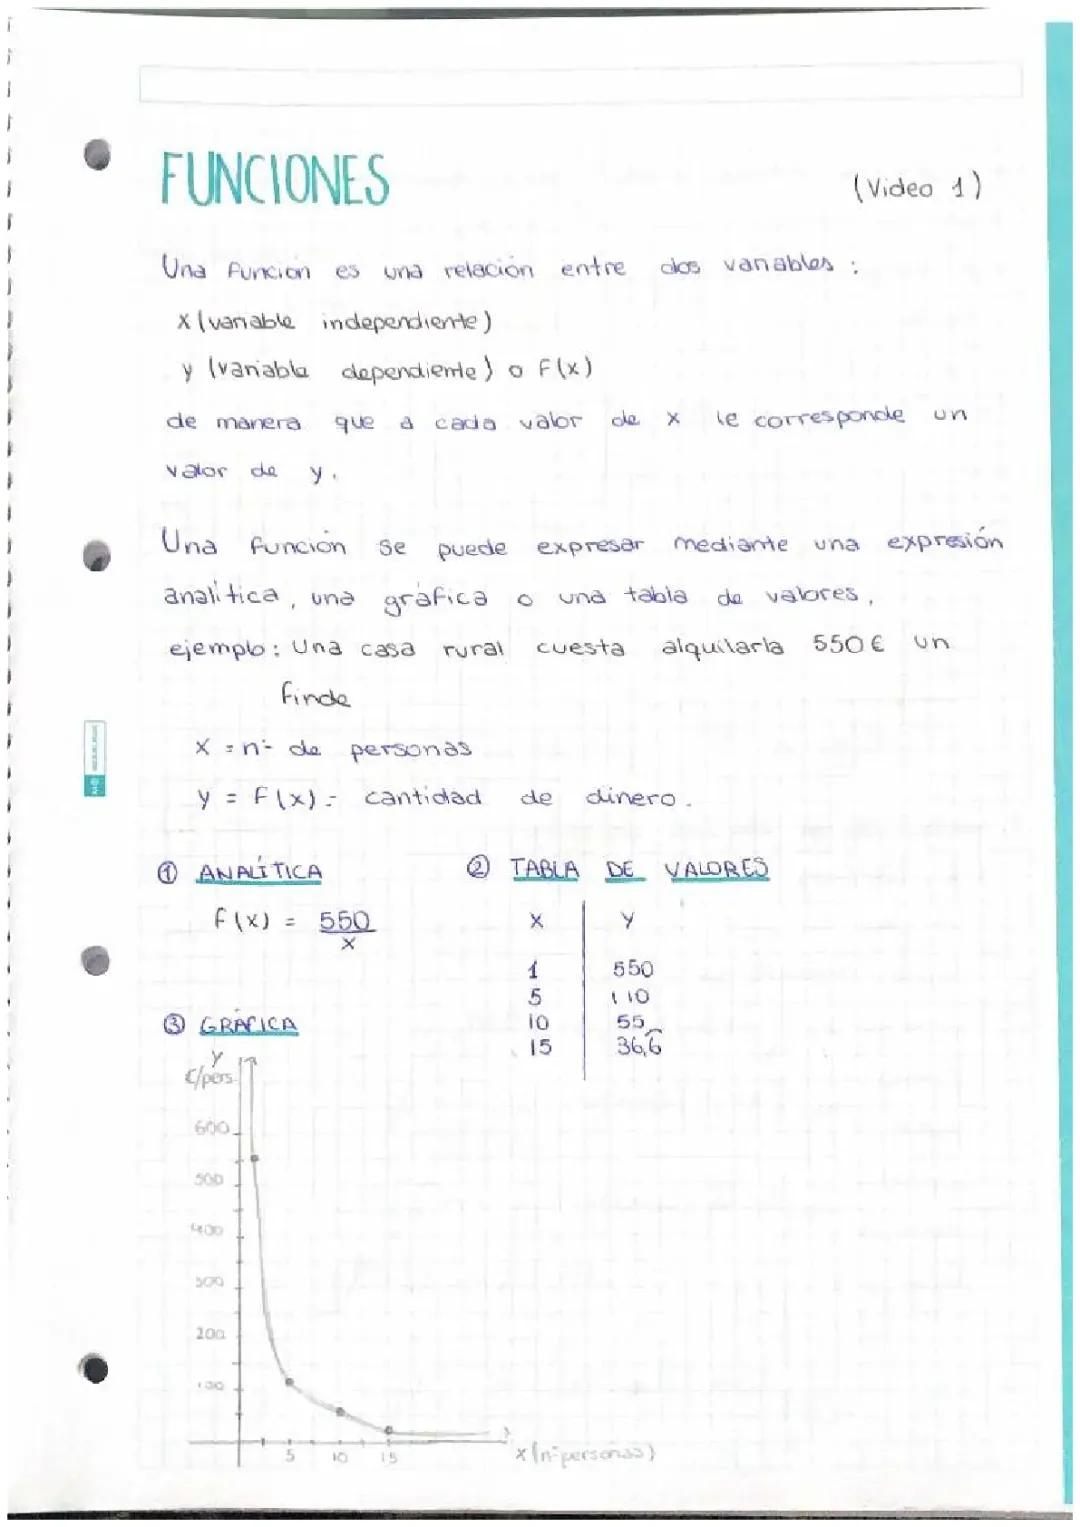 FUNCIONES
(Video 1)
Una función es una relación entre dos variables :
x (variable independiente)
y (variable dependiente) o f(x)
de manera que a cada valor de x le corresponde un
valor de y.
Una función se puede expresar mediante una expresión
analítica, una gráfica o una tabla de valores,
ejemplo: Una casa rural cuesta alquilarla 550 € un
finde
x = nº de personas
y = f(x) = cantidad de dinero.
① ANALÍTICA
f(x) = 550
x
② TABLA DE VALORES
x y
1 550
5 110
10 55
15 36,6
③ GRÁFICA
y
€/pers.
600
500
400
300
200
100
5 10 15
x (nº personas)